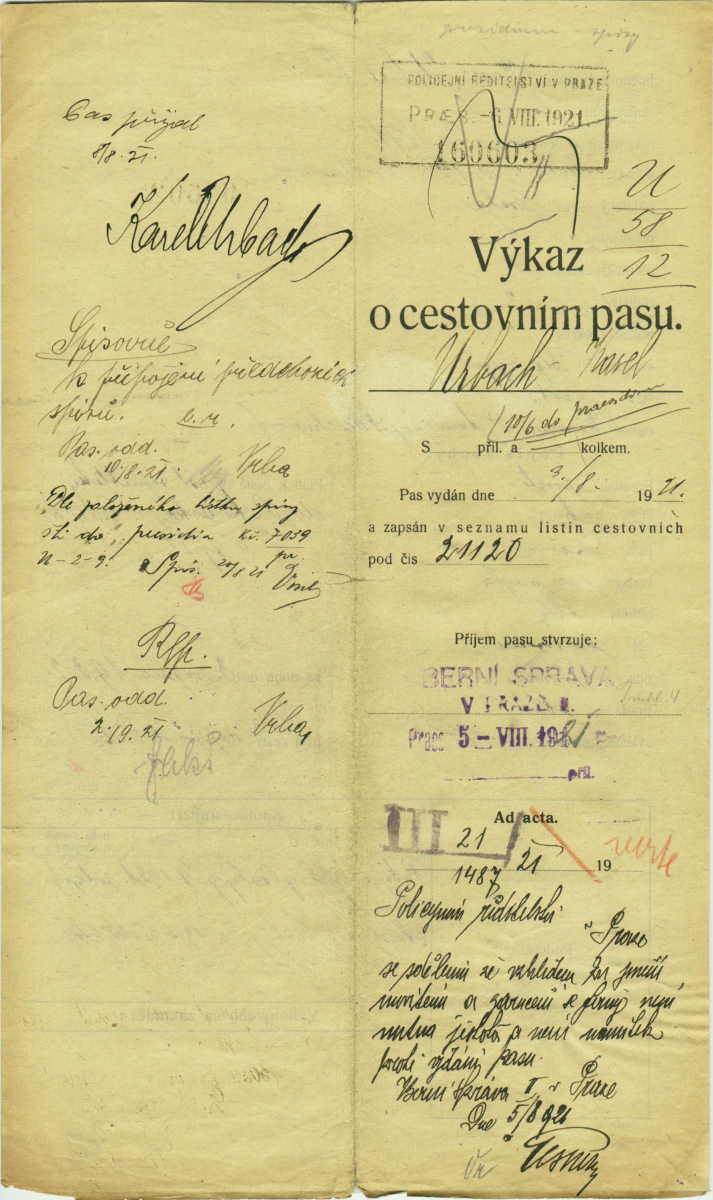 Čas přijal
8/8. 21.
Karel Urbach
Spisovně
k připojení předchozích
spisů.
Pas. odd.
10./8. 21. Vrba
Dle položeného lístku spisy
čís. 7039
20/8 21
Pas. odd.
2./9. 21 Vrba
presidium - spisy
POLICEJNÍ ŘEDITELSTVÍ V PRAZE
PRAES. -6. VIII. 1921
160603
U
58
12
Výkaz
o cestovním pasu.
Urbach Karel
10/6 do praesidia
S příl. a kolkem.
Pas vydán dne 3./8. 1921.
a zapsán v seznamu listin cestovních
pod čís 21120
Příjem pasu stvrzuje:
BERNÍ SPRÁVA
V PRAZE II.
Praes 5 - VIII. 1921
příl.
Ad acta.
III 21
1487 21 19
Policejnímu ředitelství
v Praze
se sdělením že vzhledem ku jmění
movitému a zaručení se firmy není
nutna jistota a není námitek
proti vydání pasu.
Berní správa II v Praze
Dne 5/8 921